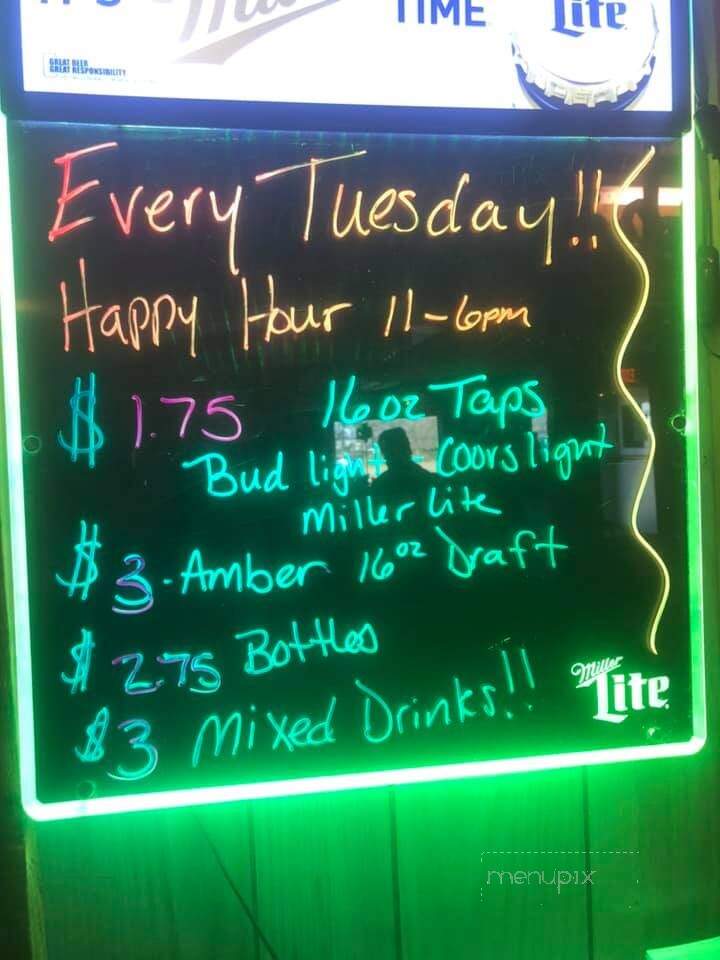 TIME
Lite
GREAT BEER
GREAT RESPONSIBILITY
Every Tuesday!!
Happy Hour 11-6pm
$1.75 16oz Taps
Bud light - Coors light
Miller Lite
$3-Amber 16oz Draft
$2.75 Bottles
$3 Mixed Drinks!!
Miller
Lite
menupix